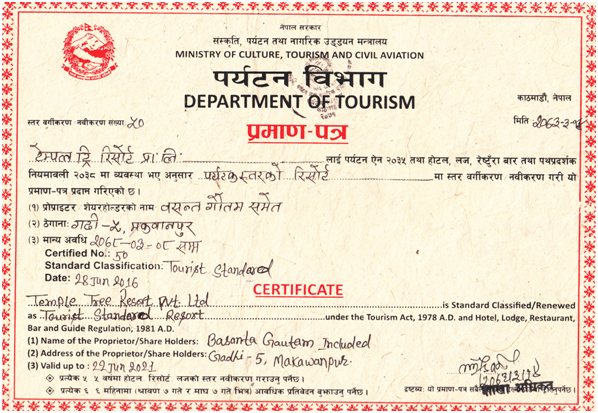 नेपाल सरकार
संस्कृति, पर्यटन तथा नागरिक उड्डयन मन्त्रालय
MINISTRY OF CULTURE, TOURISM AND CIVIL AVIATION
पर्यटन विभाग
DEPARTMENT OF TOURISM
काठमाडौं, नेपाल
स्तर वर्गीकरण/नवीकरण संख्या ५०
मिति २०७३-३-१४
प्रमाण-पत्र
टेम्पल ट्रि रिसोर्ट प्रा.लि. लाई पर्यटन ऐन २०३५ तथा होटल, लज, रेष्टुँरा बार तथा पथप्रदर्शक
नियमावली २०३८ मा व्यवस्था भए अनुसार पर्यटकस्तरको रिसोर्ट मा स्तर वर्गीकरण/नवीकरण गरी यो
प्रमाण-पत्र प्रदान गरिएको छ।
(१) प्रोप्राइटर/शेयरहोल्डरको नाम वसन्त गौतम समेत
(२) ठेगाना: गढी-५, मकवानपुर
(३) मान्य अवधि २०७८-०३-०८ सम्म
Certified No.: 50
Standard Classification: Tourist Standared
Date: 28 Jun 2016
CERTIFICATE
Temple Tree Resort Pvt. Ltd is Standard Classified/Renewed
as Tourist Standared Resort under the Tourism Act, 1978 A.D. and Hotel, Lodge, Restaurant,
Bar and Guide Regulation, 1981 A.D.
(1) Name of the Proprietor/Share Holders: Basanta Gautam, Included
(2) Address of the Proprietor/Share Holders: Gadhi-5, Makawanpur.
(3) Valid up to: 22 Jun 2021
प्रत्येक ५ वर्षमा होटल रिसोर्ट लजको स्तर नवीकरण गराउनु पर्नेछ।
प्रत्येक ६ महिनामा (श्रावण ७ गते र माघ ७ गते भित्र) आवधिक प्रतिवेदन बुझाउनु पर्नेछ।
शाखा अधिकृत
द्रष्टव्य: यो प्रमाण-पत्र